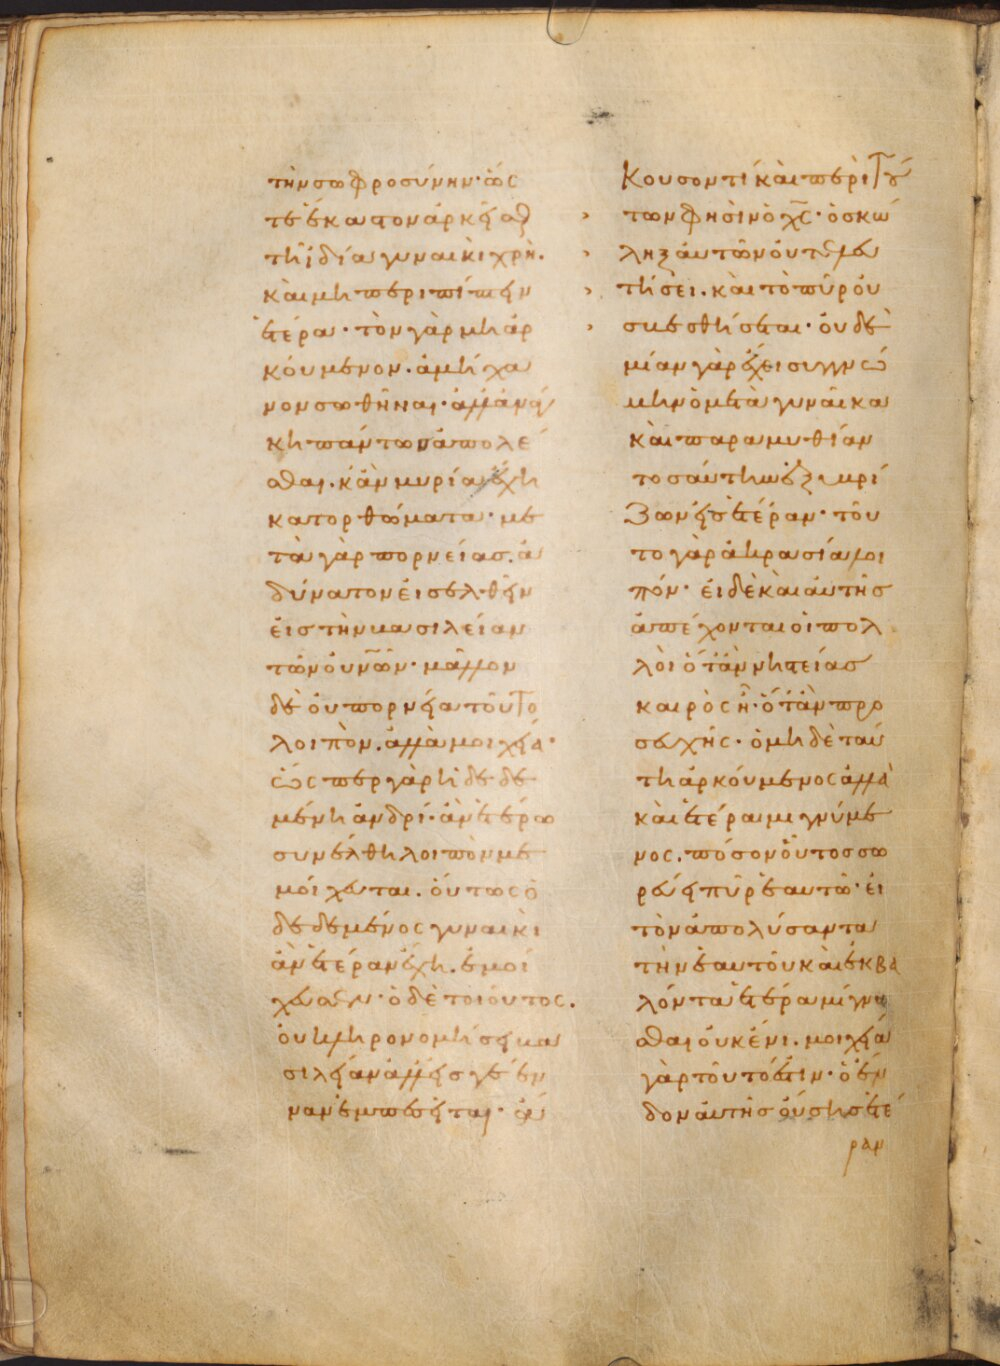 τὴν σωφροσύνην· ὥς
τε ἑκαστον ἀρκεῖσθ
τῆ ἰδία γυναικὶ χρὴ.
καὶ μὴ περιπίπτειν
ἑτέρα· τὸν γὰρ μὴ ἀρ
κόυμενον. ἀμήχα
νον σωθῆναι· ἀλλ ἀνάγ
κη πάντων ἀπολέ
σθαι. κἀν μυρία ἔχη
κατορθώματα· με
τὰ γὰρ πορνείασ. ἀ
δύνατον ἐισελθεῖν
ἐισ τὴν βασιλείαν
τῶν ὀυνῶν· μᾶλλον
δὲ ὀυ πορνεία τοῦτο
λοιπὸν. ἀλλὰ μοιχεία·
ὥσπερ γὰρ ἡ δεδε
μένη ἀνδρί· ἀν ἑτέρω
συνέλθη λοιπὸν με
μόιχευται. ὁύτως ὁ
δεδεμένος γυναικὶ
ἀν ἑτέραν ἔχη. ἐμοί
χευσεν· ὁ δὲ τοιόυτος.
ὀυ κληρονομήσει βα
σιλείαν ἀλλ εἰσ γέεν
ναν ἐμπεσεῖται· ἀ
Κουσον τί κὰι περὶ τού
των φησὶν ὁ χς· ὁ σκώ
ληξ ἀυτῶν ὀυ τελευ
τήσει. κὰι τὸ πῦρ ὀυ
σβεσθήσεται· ὀυδε
μίαν γὰρ ἔχει συγγνώ
μην ὁ μετὰ γυνᾶικα
κὰι παραμυθίαν
τοσάυτην ἐξυβρί
ζων εἰσ ἑτέραν· τοῦ
το γὰρ ἀκρασία λοι
πόν· ἐι δὲ κὰι ἀυτῆσ
ἀπέχονται οἱ πολ
λὸι ὅταν νηστείασ
καιρὸς ῆ· ὅταν προ
σευχῆς· ὁ μηδὲ ταύ
τη ἀρκόυμενος ἀλλὰ
κὰι ἑτέραι μιγνύμε
νος. πόσον ὁῦτος σω
ρεύει πῦρ ἑαυτῶ· ἐι
τὸν ἀπολύσαντα
τὴν ἑαυτοῦ κὰι ἐκβα
λόντα ἑτέρα μίγνυ
σθαι ὀυκ ἔνι. μοιχεία
γὰρ τοῦτό ἐστιν· ὁ ἔν
δον ἀυτῆσ ὀύσησ ἑτέ
ραν